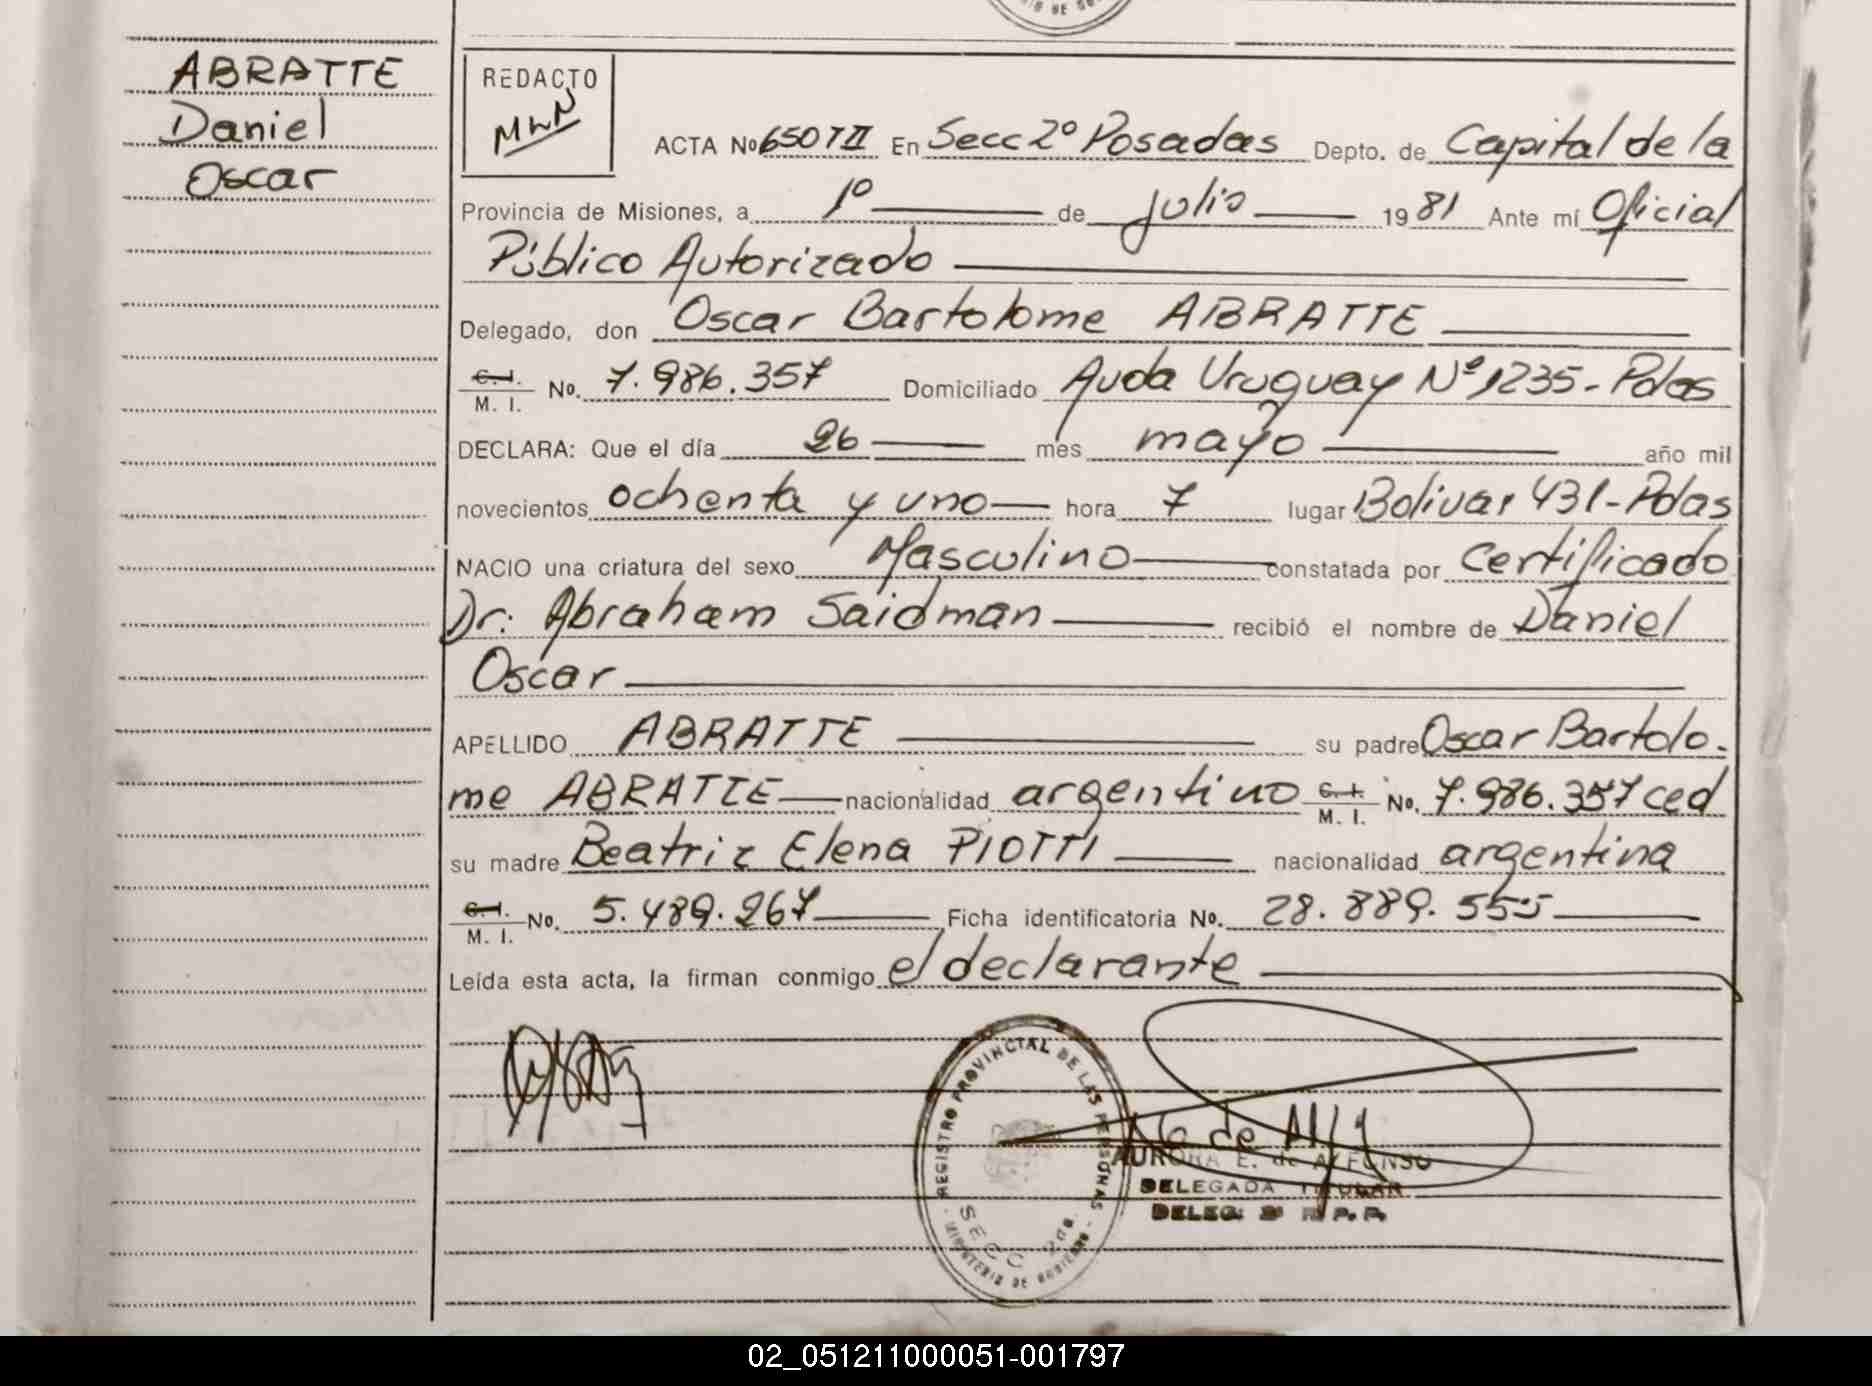 ABRATTE
Daniel
Oscar
REDACTO
ACTA No 650 T II En Secc 2º Posadas Depto. de Capital de la
Provincia de Misiones, a 1º de julio 1981 Ante mí Oficial
Público Autorizado
Delegado, don Oscar Bartolome ABRATTE
C. I.
M. I. No. 7.986.357 Domiciliado Avda Uruguay Nº 1235-Pdas
DECLARA: Que el día 26 mes mayo año mil
novecientos ochenta y uno hora 7 lugar Bolivar 431-Pdas
NACIO una criatura del sexo Masculino constatada por Certificado
Dr. Abraham Saidman recibió el nombre de Daniel
Oscar
APELLIDO ABRATTE su padre Oscar Bartolo-
me ABRATTE nacionalidad argentino C. I. M. I. No. 7.986.357 ced
su madre Beatriz Elena PIOTTI nacionalidad argentina
C. I.
M. I. No. 5.489.267 Ficha identificatoria No. 28.889.555
Leída esta acta, la firman conmigo el declarante
REGISTRO PROVINCIAL DE LAS PERSONAS
SECC 2da.
MINISTERIO DE GOBIERNO
AURORA E. de ALFONSO
DELEGADA TITULAR
DELEG. 2ª R. P. P.
02_051211000051-001797